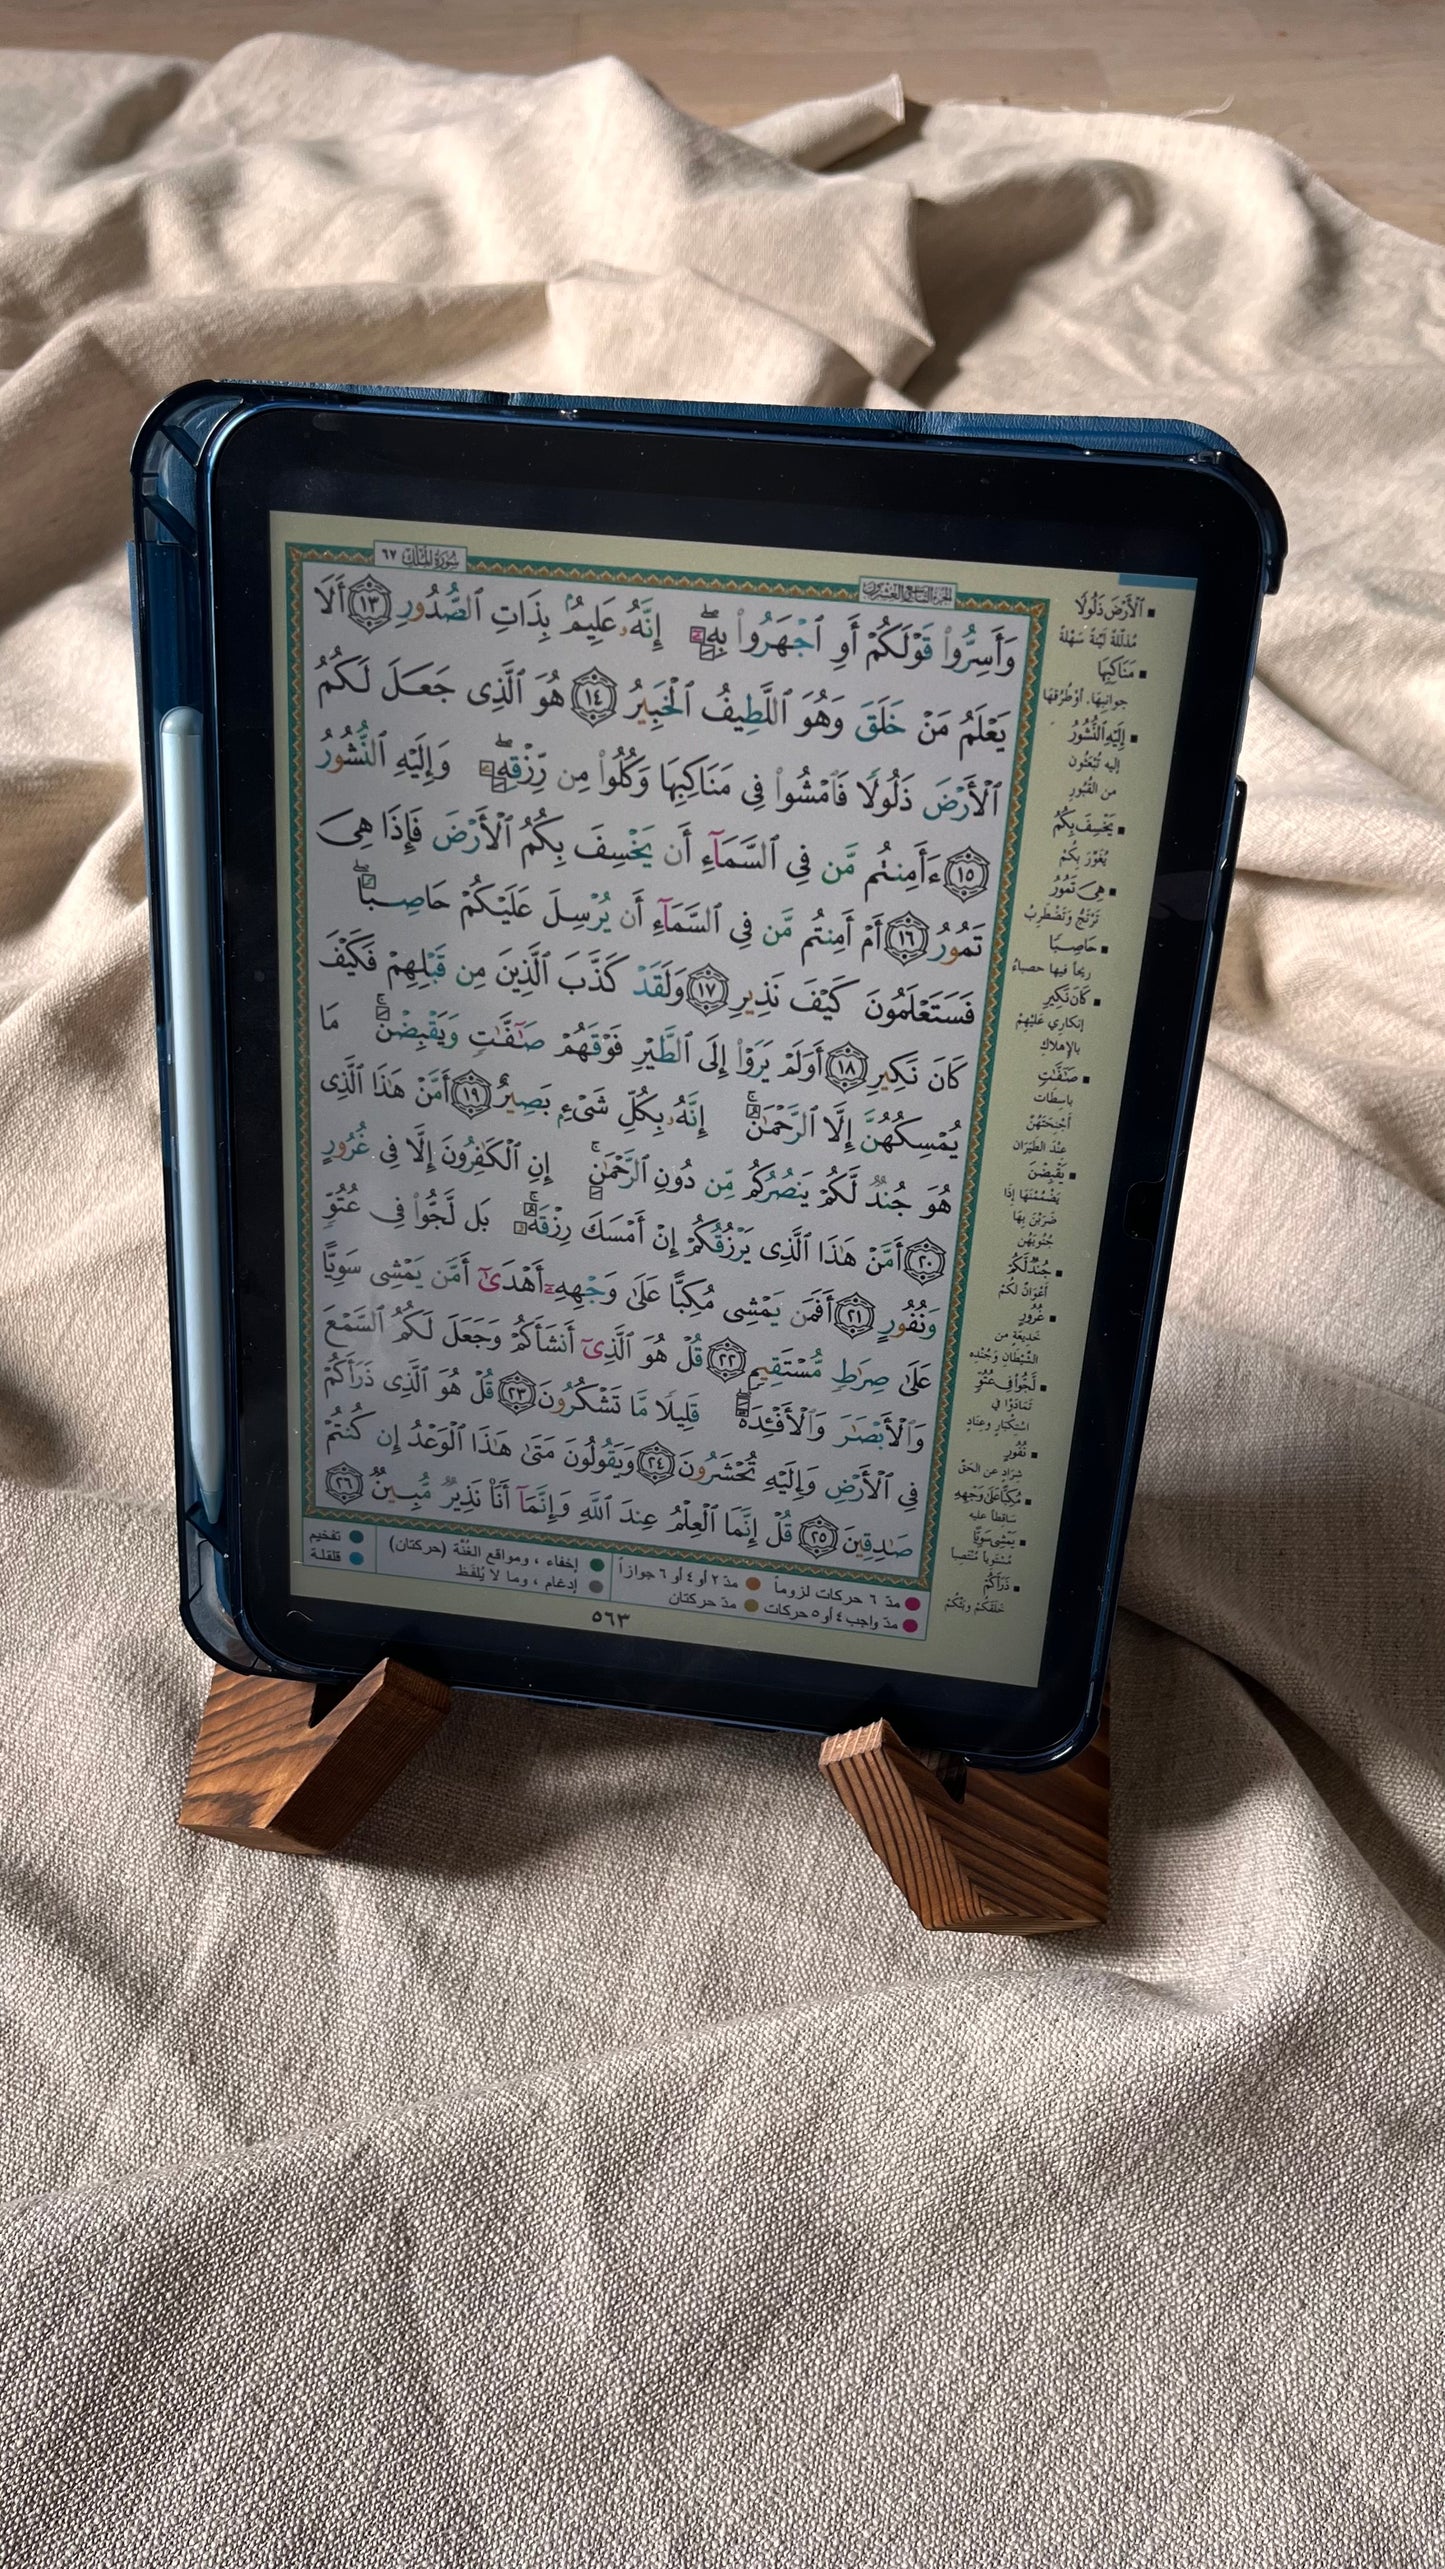 سُورَةُ المُلْكِ ٦٧
الجزء التاسع والعشرون
وَأَسِرُّوا۟ قَوْلَكُمْ أَوِ ٱجْهَرُوا۟ بِهِۦٓ ۖ إِنَّهُۥ عَلِيمٌۢ بِذَاتِ ٱلصُّدُورِ ١٣ أَلَا
يَعْلَمُ مَنْ خَلَقَ وَهُوَ ٱللَّطِيفُ ٱلْخَبِيرُ ١٤ هُوَ ٱلَّذِى جَعَلَ لَكُمُ
ٱلْأَرْضَ ذَلُولًا فَٱمْشُوا۟ فِى مَنَاكِبِهَا وَكُلُوا۟ مِن رِّزْقِهِۦ ۖ وَإِلَيْهِ ٱلنُّشُورُ
١٥ ءَأَمِنتُم مَّن فِى ٱلسَّمَآءِ أَن يَخْسِفَ بِكُمُ ٱلْأَرْضَ فَإِذَا هِىَ
تَمُورُ ١٦ أَمْ أَمِنتُم مَّن فِى ٱلسَّمَآءِ أَن يُرْسِلَ عَلَيْكُمْ حَاصِبًا ۖ
فَسَتَعْلَمُونَ كَيْفَ نَذِيرِ ١٧ وَلَقَدْ كَذَّبَ ٱلَّذِينَ مِن قَبْلِهِمْ فَكَيْفَ
كَانَ نَكِيرِ ١٨ أَوَلَمْ يَرَوْا۟ إِلَى ٱلطَّيْرِ فَوْقَهُمْ صَـٰٓفَّـٰتٍ وَيَقْبِضْنَ ۚ مَا
يُمْسِكُهُنَّ إِلَّا ٱلرَّحْمَـٰنُ ۚ إِنَّهُۥ بِكُلِّ شَىْءٍۭ بَصِيرٌ ١٩ أَمَّنْ هَـٰذَا ٱلَّذِى
هُوَ جُندٌ لَّكُمْ يَنصُرُكُم مِّن دُونِ ٱلرَّحْمَـٰنِ ۚ إِنِ ٱلْكَـٰفِرُونَ إِلَّا فِى غُرُورٍ
٢٠ أَمَّنْ هَـٰذَا ٱلَّذِى يَرْزُقُكُمْ إِنْ أَمْسَكَ رِزْقَهُۥ ۚ بَل لَّجُّوا۟ فِى عُتُوٍّ
وَنُفُورٍ ٢١ أَفَمَن يَمْشِى مُكِبًّا عَلَىٰ وَجْهِهِۦٓ أَهْدَىٰٓ أَمَّن يَمْشِى سَوِيًّا
عَلَىٰ صِرَٰطٍ مُّسْتَقِيمٍ ٢٢ قُلْ هُوَ ٱلَّذِىٓ أَنشَأَكُمْ وَجَعَلَ لَكُمُ ٱلسَّمْعَ
وَٱلْأَبْصَـٰرَ وَٱلْأَفْـِٔدَةَ ۖ قَلِيلًا مَّا تَشْكُرُونَ ٢٣ قُلْ هُوَ ٱلَّذِى ذَرَأَكُمْ
فِى ٱلْأَرْضِ وَإِلَيْهِ تُحْشَرُونَ ٢٤ وَيَقُولُونَ مَتَىٰ هَـٰذَا ٱلْوَعْدُ إِن كُنتُمْ
صَـٰدِقِينَ ٢٥ قُلْ إِنَّمَا ٱلْعِلْمُ عِندَ ٱللَّهِ وَإِنَّمَآ أَنَا۠ نَذِيرٌ مُّبِينٌ ٢٦
ٱلْأَرْضَ ذَلُولًا
مُذَلَّلَةً لَيِّنَةً سَهْلَةً
مَنَاكِبِهَا
جوانبها. أو طُرُقها
إِلَيْهِ النُّشُورُ
إليه تُبْعَثُون
من القُبُور
يَخْسِفَ بِكُمُ
يُغَوِّرَ بِكُمْ
هِىَ تَمُورُ
تَرْتَجُّ وَتَضْطَرِبُ
حَاصِبًا
ريحاً فيها حصباءُ
كَانَ نَكِيرِ
إنكاري عَلَيْهِمْ
بالإهلاكِ
صَـٰٓفَّـٰتٍ
باسِطات
أَجْنِحَتَهُنَّ
عِنْدَ الطَّيَرَان
يَقْبِضْنَ
يَضْمُمْنَهَا إذَا
ضَرَبْنَ بِهَا
جُنُوبَهُن
جُندٌ لَّكُمْ
أَعْوَانٌ لكُمْ
غُرُورٍ
خَدِيعَةٍ من
الشَّيْطَانِ وَجُنْدِه
لَّجُّوا۟ فِى عُتُوٍّ
تَمَادَوْا في
اسْتِكْبَارٍ وعِنَادٍ
نُفُورٍ
شِرَادٍ عن الحَقّ
مُكِبًّا عَلَىٰ وَجْهِهِ
سَاقطاً عليه
يَمْشِى سَوِيًّا
مُسْتَوِياً مُنْتَصِباً
ذَرَأَكُمْ
خَلَقَكُمْ وبَثَّكُمْ
مدّ ٦ حركات لزوماً
مدّ ٢ أو ٤ أو ٦ جوازاً
إخفاء ، ومواقع الغُنَّة (حركتان)
تفخيم
مدّ واجب ٤ أو ٥ حركات
مدّ حركتان
إدغام ، وما لا يُلفَظ
قلقلة
٥٦٣